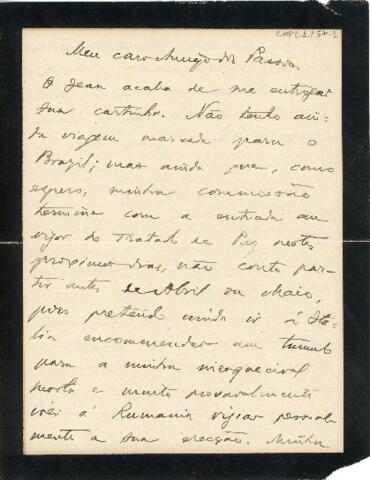 CMPC-1.2.57-1
Meu caro Amigo dos Passos
O Jean acaba de me entregar
sua cartinha. Não tenho ain-
da viagem marcada para o
Brazil; mas ainda que, como
espero, minha commissão
termine com a entrada em
vigor do Tratado de Paz nestes
proximos dias, não conto par-
tir antes de Abril ou Maio,
pois pretendo ainda ir á Ita-
lia encommendar um tumulo
para a minha inesquecivel
morta e muito provavelmente
irei á Rumania vijiar pessoal-
mente a sua erecção. Minha